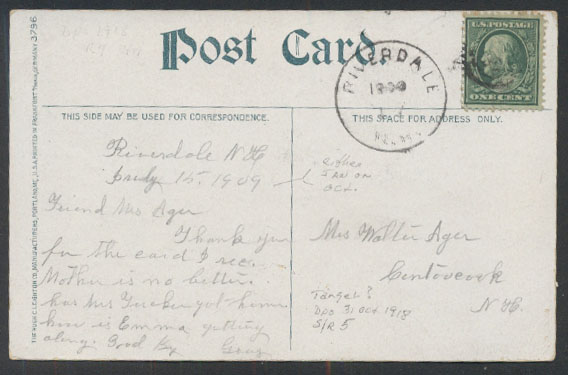 3796
DPO 1918
Post Card
RIVERDALE
1909
U.S. POSTAGE
ONE CENT
THIS SIDE MAY BE USED FOR CORRESPONDENCE.
THIS SPACE FOR ADDRESS ONLY.
THE HUGH C. LEIGHTON CO., MANUFACTURERS, PORTLAND, ME., U.S.A. PRINTED IN FRANKFORT GERMANY
Riverdale N H
15, 1909
Friend Mrs Ager
Thank you
for the card I rec
Mother is no better.
has Mrs got home
how is Emma getting
along. Good By
either
JAN OR
OCT.
Mrs Walter Ager
Contoocook
N H.
Target?
DPO 31 Oct 1918
S/R 5